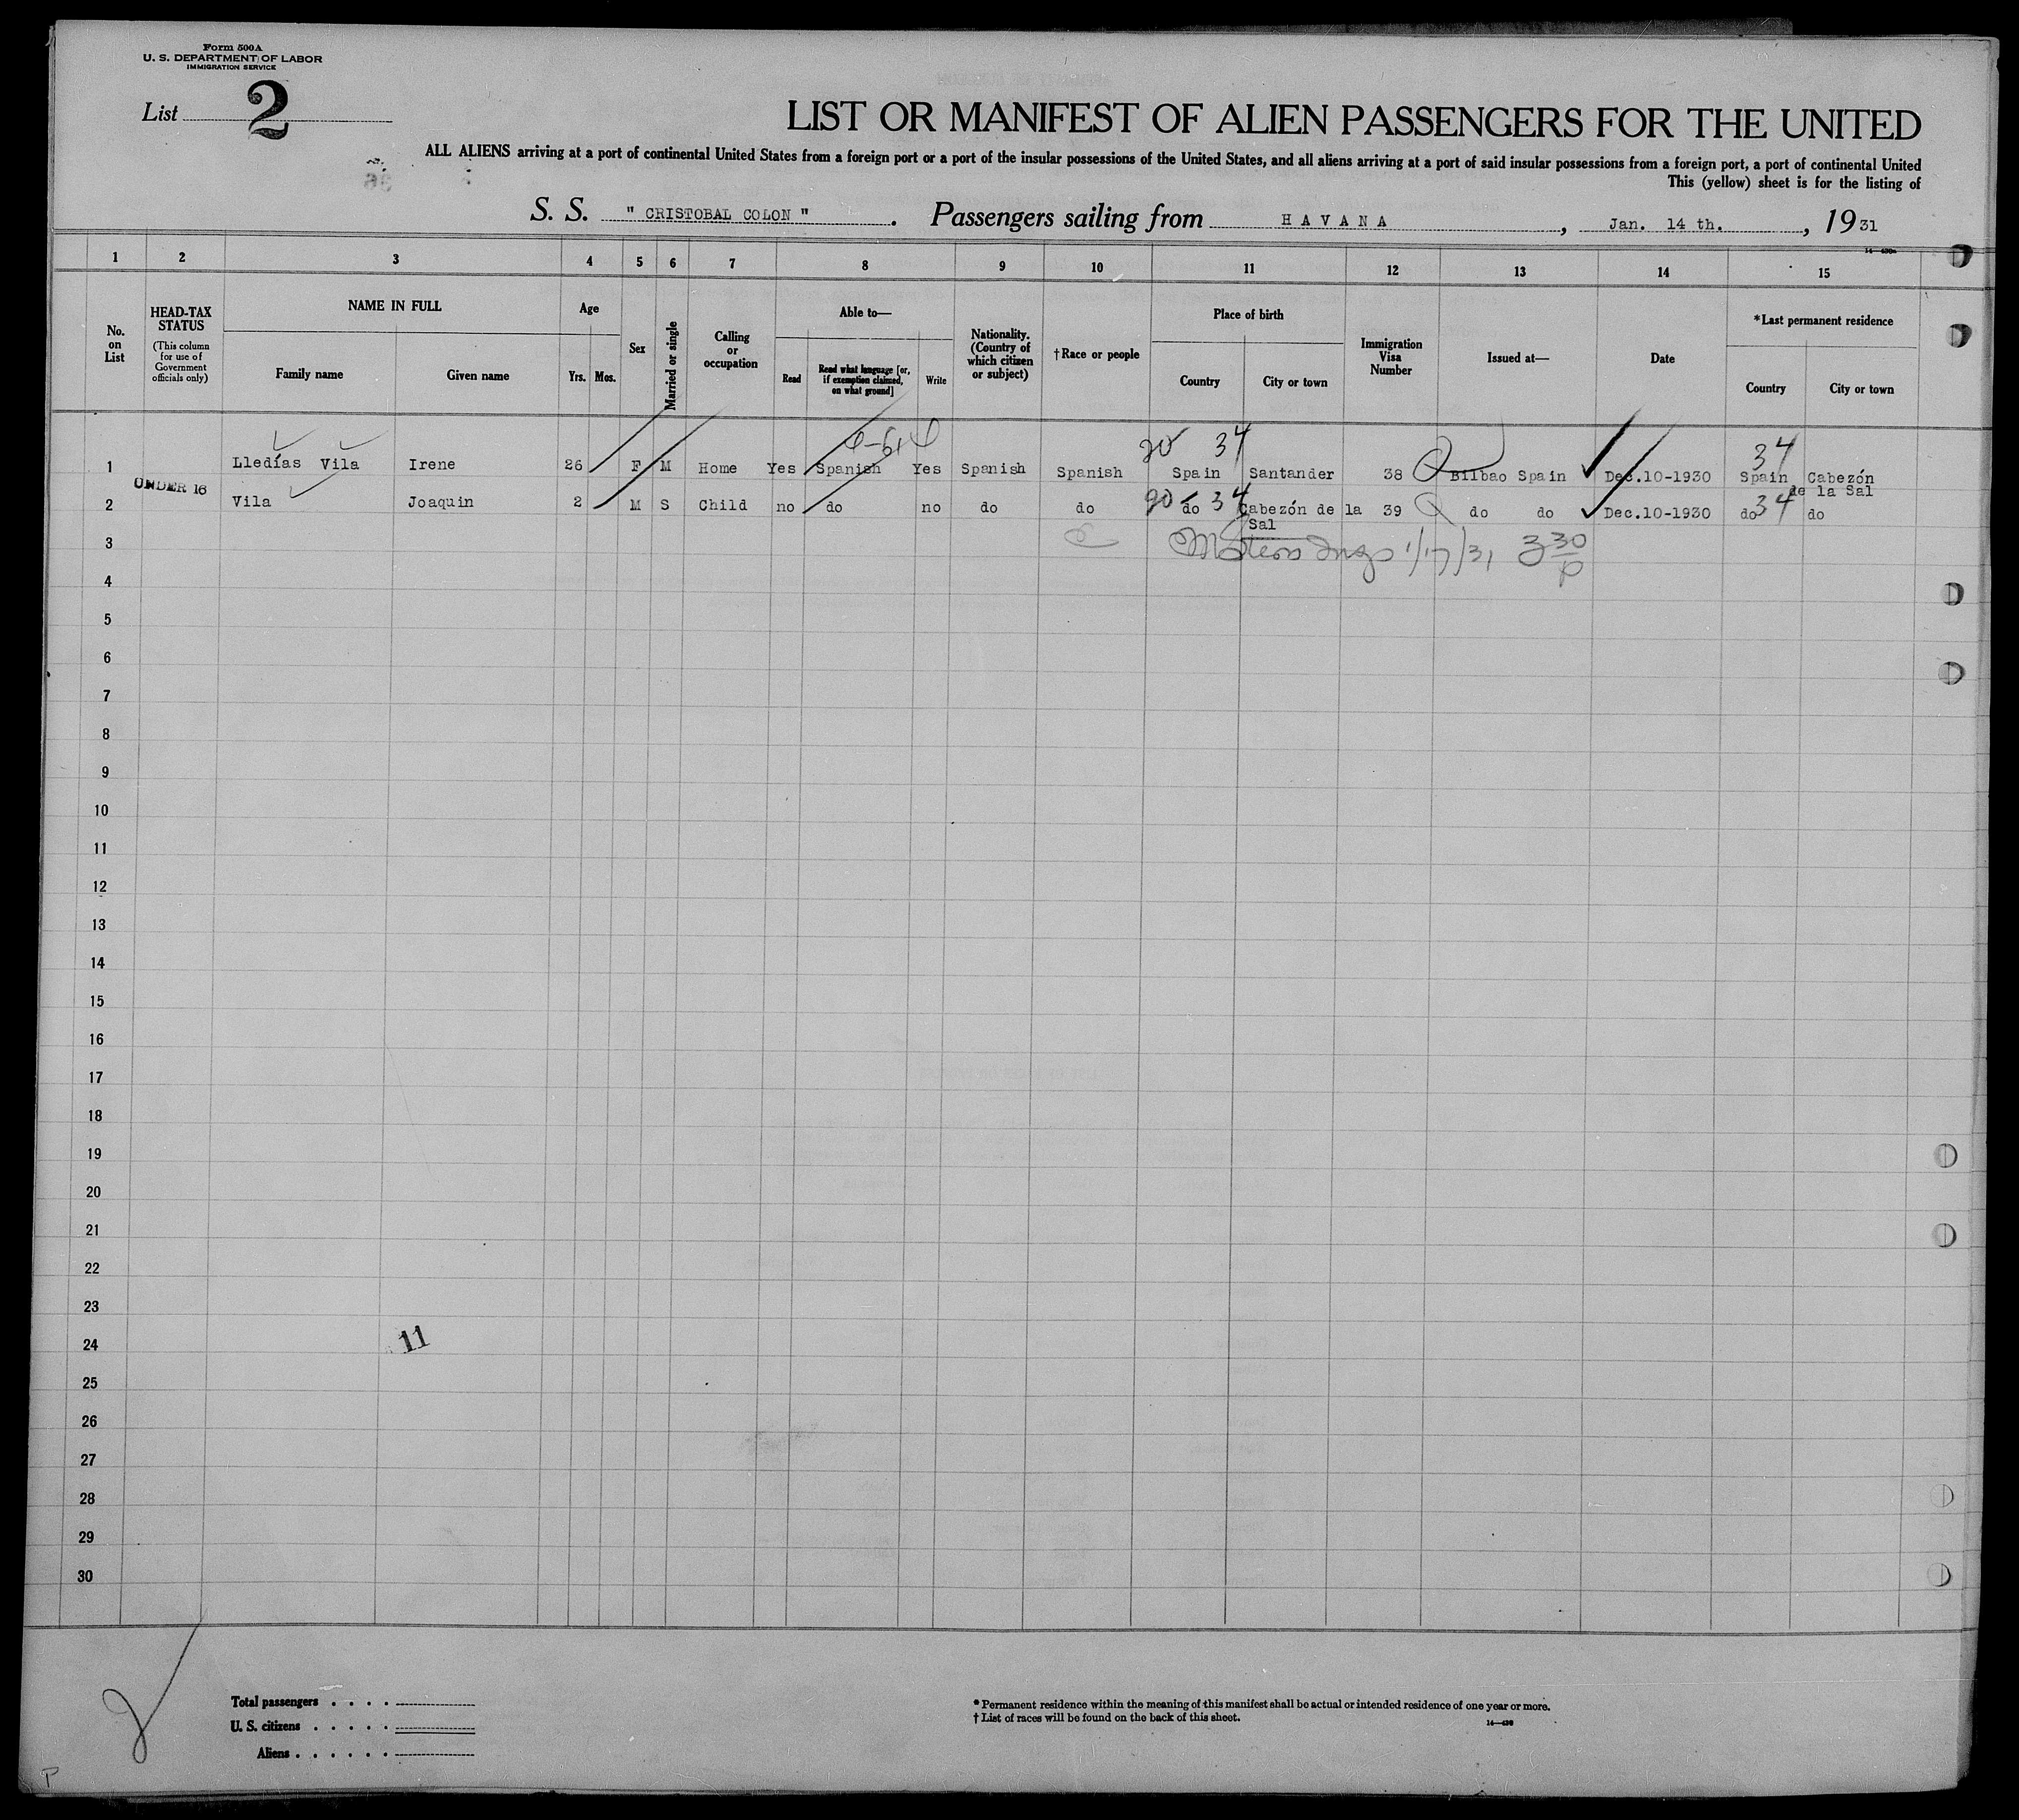 Form 500A
U. S. DEPARTMENT OF LABOR
IMMIGRATION SERVICE
List 2
LIST OR MANIFEST OF ALIEN PASSENGERS FOR THE UNITED
ALL ALIENS arriving at a port of continental United States from a foreign port or a port of the insular possessions of the United States, and all aliens arriving at a port of said insular possessions from a foreign port, a port of continental United
This (yellow) sheet is for the listing of
S. S. " CRISTOBAL COLON " . Passengers sailing from HAVANA , Jan. 14 th. , 1931
1 2 3 4 5 6 7 8 9 10 11 12 13 14 15
No. on List
HEAD-TAX STATUS
(This column for use of Government officials only)
NAME IN FULL
Family name Given name
Age
Yrs. Mos.
Sex
Married or single
Calling or occupation
Able to—
Read Read what language [or, if exemption claimed, on what ground] Write
Nationality. (Country of which citizen or subject)
†Race or people
Place of birth
Country City or town
Immigration Visa Number
Issued at—
Date
*Last permanent residence
Country City or town
34 34
1 Lledías Vila Irene 26 F M Home Yes Spanish Yes Spanish Spanish Spain Santander 38 Bilbao Spain Dec.10-1930 Spain Cabezón de la Sal
UNDER 16
2 Vila Joaquin 2 M S Child no do no do do do 34 Cabezón de la Sal 39 do do Dec.10-1930 do 34 do
3 1/17/31 3 30 p
4
5
6
7
8
9
10
11
12
13
14
15
16
17
18
19
20
21
22
23
24
11
25
26
27
28
29
30
Total passengers . . . .
U. S. citizens . . . . .
Aliens . . . . . .
* Permanent residence within the meaning of this manifest shall be actual or intended residence of one year or more.
† List of races will be found on the back of this sheet.
14—430
P